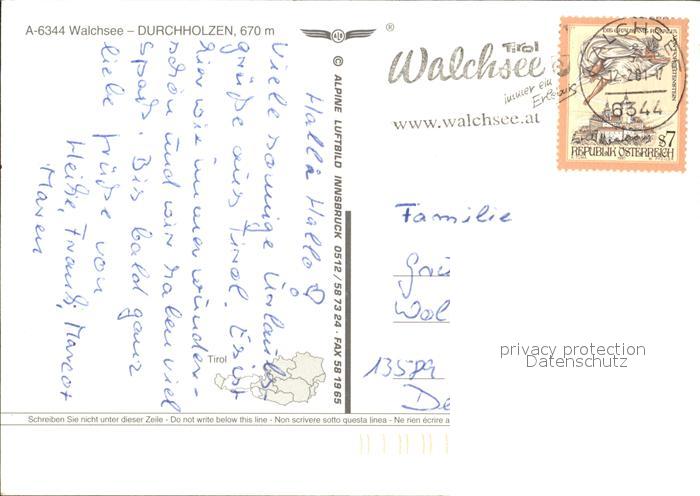 A-6344 Walchsee – DURCHHOLZEN, 670 m
Hallå Hallo
Viele sonnige Urlaubs-
grüße aus Tirol. Es ist
hier wie immer wunder-
schön und wir haben viel
Spaß. Bis bald ganz
liebe Grüße von
Heike, Frank, Marco +
Maren
Tirol
© ALPINE LUFTBILD INNSBRUCK 0512/587324 · FAX 581965
®
Tirol
Walchsee
immer ein
Erlebnis
www.walchsee.at
6344
S7
REPUBLIK ÖSTERREICH
Familie
Grü
Wal
13589
De
privacy protection
Datenschutz
Schreiben Sie nicht unter dieser Zeile - Do not write below this line - Non scrivere sotto questa linea - Ne rien écrire a